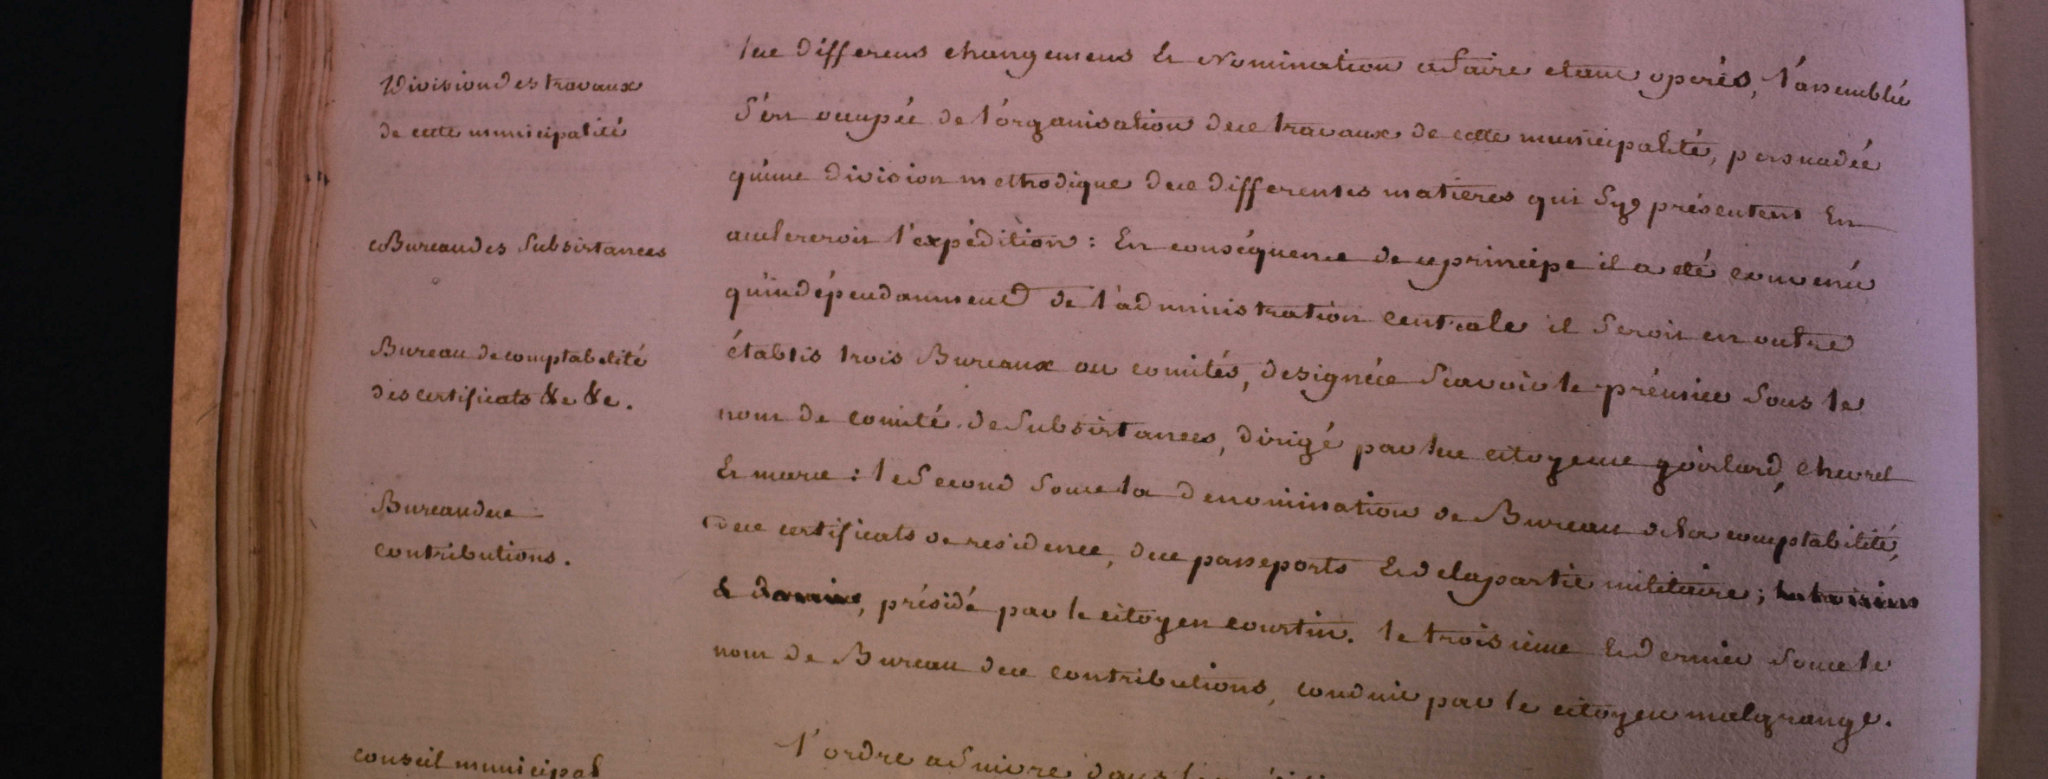 Division des travaux
de cette municipalité
Bureau des Subsistances
Bureau de comptabilité
des certificats &c &c.
Bureau des
contributions.
conseil municipal
les différens changemens Et Nomination a faire etant operés, l'assemblée
S'est occupée de l'organisation des travaux de cette municipalité, persuadée
qu'une division methodique des differentes matieres qui S'y présentent En
accelereroit l'expédition : En conséquence de ce principe il a été convenu
qu'indépendamment de l'administration centrale il Seroit en outre
établis trois Bureaux ou comités, designés Scavoir le prémier Sous le
nom de comité de Subsistances, dirigé par les citoyens goislard, chevrel
Et marie : le Second Sous la denomination de Bureau de la comptabilité,
des certificats de residence, des passeports Et de la partie militaire ;
&, présidé par le citoyen courtin. le troisieme Et dernier Sous le
nom de Bureau des contributions, conduit par le citoyen malgrange.
l'ordre a Suivre dans